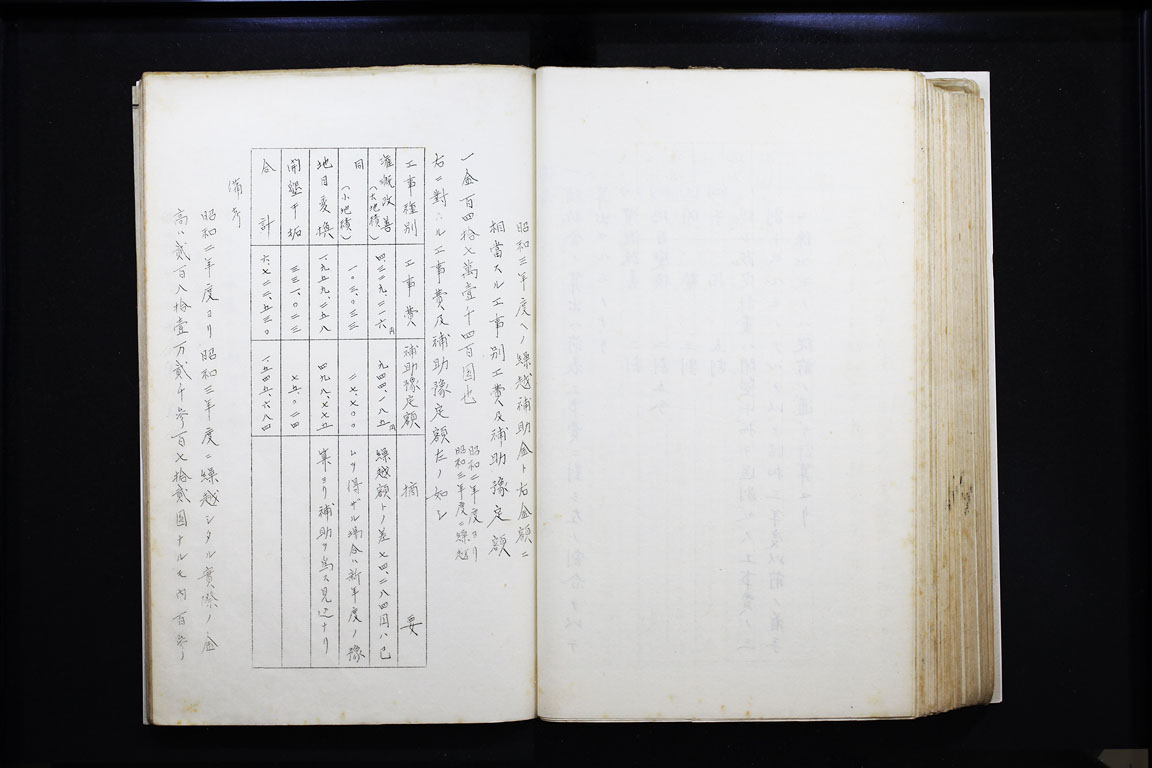 昭和三年度ヘノ繰越補助金ト右金額ニ
相當スル工事別工費及補助豫定額
一金百四拾七萬壹千四百圓也
昭和二年度ヨリ
昭和三年度ニ繰越
右ニ對スル工事費及補助豫定額左ノ如シ
工事種別 工事費 補助豫定額 摘要
灌漑改善（大地積） 四三二九、二一六円 九四四、一八五円 繰越額トノ差七四、二八四円ハ已
同（小地積） 一〇三、〇三三 二七、七〇〇 ムヲ得ザル場合ハ新年度ノ豫
地目変換 一、九五九、二五八 四九八、七七五 算ヨリ補助ヲ為ス見込ナリ
開墾干拓 三三一、〇二三 七五、〇二四
合計 六、七二二、五三〇 一、五四五、六八四
備考
昭和二年度ヨリ昭和三年度ニ繰越シタル實際ノ金
高ハ貳百八拾壹万貳千參百七拾貳圓ナルモ内百參